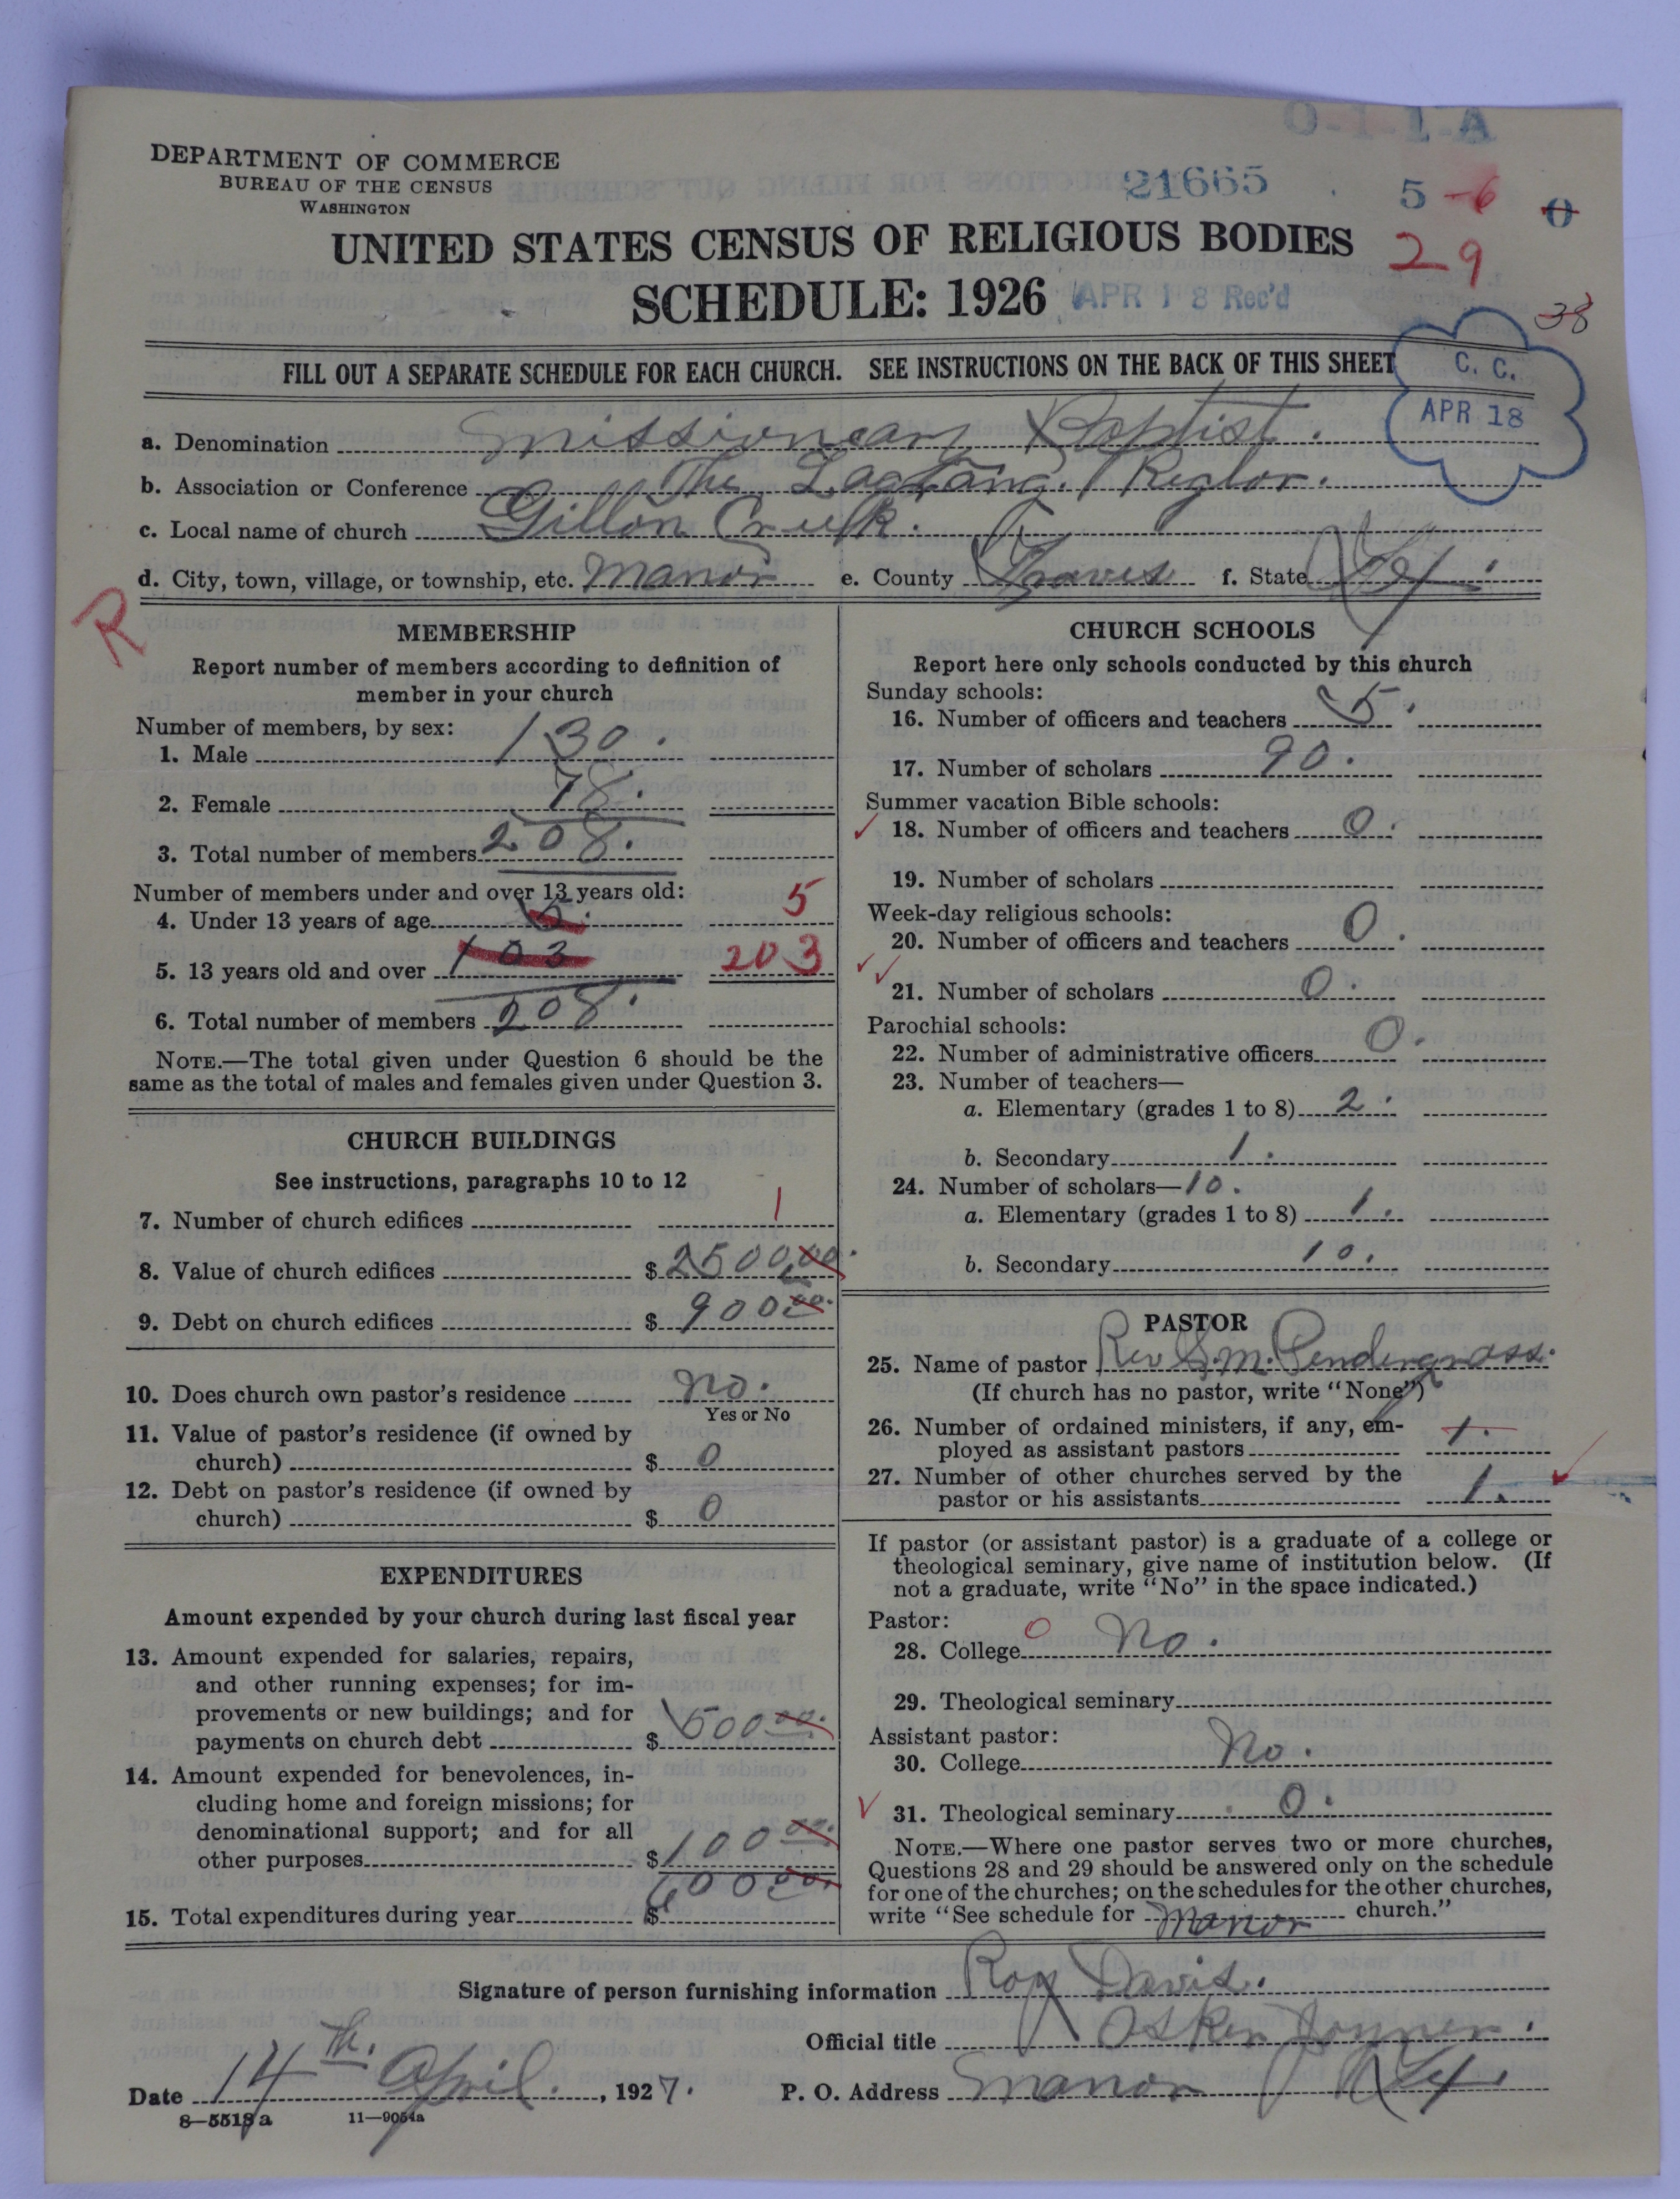 O-1-1-A
DEPARTMENT OF COMMERCE
BUREAU OF THE CENSUS
WASHINGTON
21665
5 -6
0
UNITED STATES CENSUS OF RELIGIOUS BODIES
29
SCHEDULE: 1926
APR 18 Rec'd
38
FILL OUT A SEPARATE SCHEDULE FOR EACH CHURCH. SEE INSTRUCTIONS ON THE BACK OF THIS SHEET
C. C.
APR 18
a. Denomination Missionary Baptist.
b. Association or Conference The
c. Local name of church Creek.
d. City, town, village, or township, etc. Manor e. County Travis f. State Tex.
R
MEMBERSHIP
Report number of members according to definition of
member in your church
Number of members, by sex:
1. Male 130.
2. Female 78.
3. Total number of members 208.
Number of members under and over 13 years old:
4. Under 13 years of age 5. 5
5. 13 years old and over 103 203
6. Total number of members 208.
NOTE.—The total given under Question 6 should be the
same as the total of males and females given under Question 3.
CHURCH BUILDINGS
See instructions, paragraphs 10 to 12
7. Number of church edifices 1
8. Value of church edifices $ 2500.00.
9. Debt on church edifices $ 900.00.
10. Does church own pastor's residence No.
Yes or No
11. Value of pastor's residence (if owned by
church) $ 0
12. Debt on pastor's residence (if owned by
church) $ 0
EXPENDITURES
Amount expended by your church during last fiscal year
13. Amount expended for salaries, repairs,
and other running expenses; for im-
provements or new buildings; and for
payments on church debt $ 500 00.
14. Amount expended for benevolences, in-
cluding home and foreign missions; for
denominational support; and for all
other purposes $ 100 00.
15. Total expenditures during year $ 600 00.
CHURCH SCHOOLS
Report here only schools conducted by this church
Sunday schools:
16. Number of officers and teachers 5.
17. Number of scholars 90.
Summer vacation Bible schools:
18. Number of officers and teachers 0.
19. Number of scholars
Week-day religious schools:
20. Number of officers and teachers 0.
21. Number of scholars 0.
Parochial schools:
22. Number of administrative officers 0.
23. Number of teachers—
a. Elementary (grades 1 to 8) 2.
b. Secondary 1.
24. Number of scholars— 10.
a. Elementary (grades 1 to 8) 1.
b. Secondary 10.
PASTOR
25. Name of pastor Rev S.M. Pendergrass.
(If church has no pastor, write "None")
26. Number of ordained ministers, if any, em-
ployed as assistant pastors 1.
27. Number of other churches served by the
pastor or his assistants 1.
If pastor (or assistant pastor) is a graduate of a college or
theological seminary, give name of institution below. (If
not a graduate, write "No" in the space indicated.)
Pastor:
28. College 0 No.
29. Theological seminary
Assistant pastor:
30. College No.
31. Theological seminary 0.
NOTE.—Where one pastor serves two or more churches,
Questions 28 and 29 should be answered only on the schedule
for one of the churches; on the schedules for the other churches,
write "See schedule for Manor church."
Signature of person furnishing information Roy Davis.
Official title
Date 14th. April. , 1927. P. O. Address Manor Tex.
8—5518a 11—9054a